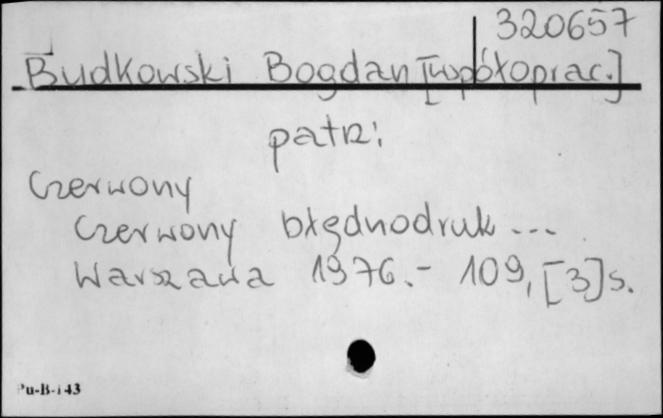 320657
Budkowski Bogdan [współoprac.]
patrz:
Czerwony
Czerwony błędnodruk ...
Warszawa 1976.- 109, [3] s.
Pu-B-143